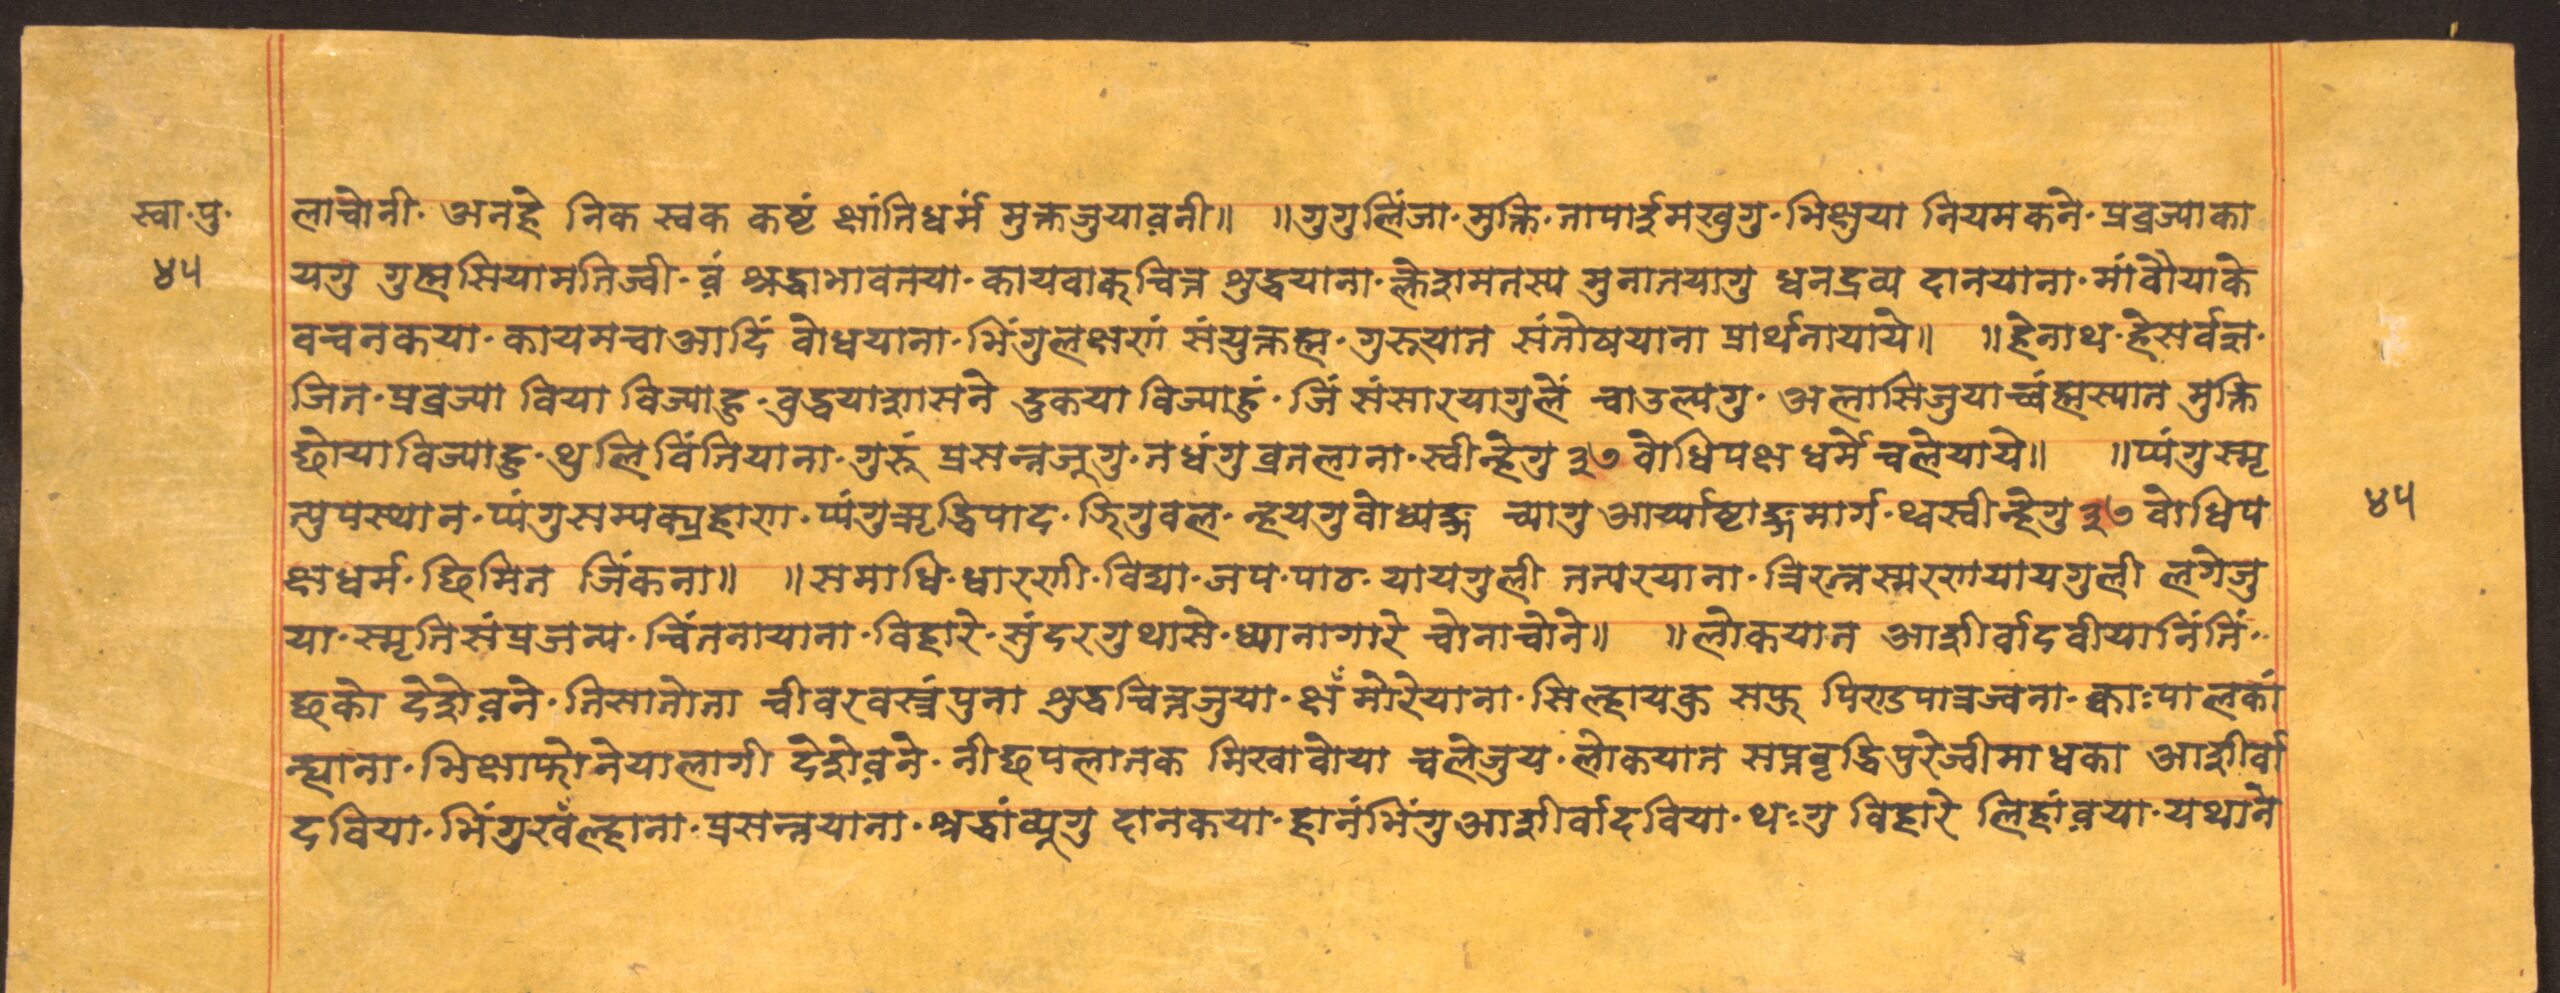 स्वा·पु·
४५
लाचोनी· अनहे निक स्वक कष्टं क्षांतिधर्मं मुक्तजुयावनी॥ ॥गुगुलिंजा·मुक्ति·तापाईमखुगु·भिक्षुया नियमकने·प्रव्रज्याका
यगु गुह्मसियामतिज्वी·वं श्रद्धाभावतया·कायवाक्चित्त शुद्धयाना·क्लेशमतस्य मुनातयागु धनद्रव्य दानयाना·मांवौयाके
वचनकया·कायमचाआदिं बोधयाना·भिंगुलक्षणं संयुक्तह्म·गुरुयात संतोषयाना प्रार्थनायाये॥ ॥हेनाथ·हेसर्वज्ञ·
जित·प्रव्रज्या विया विज्याहु·बुद्धयाशासने दुकया विज्याहुं·जिं संसारयागुलें चाउल्पगु·अलासिजुयाच्वंह्मस्यात मुक्ति
छोयाविज्याहु·थुलि विंतियाना·गुरुं प्रसन्नजूगु·नधंगु व्रतलाना·स्वीन्हेगु ३७ बोधिपक्ष धर्मे चलेयाये॥ ॥प्यंगुस्मृ
त्युपस्थान·प्यंगुसम्यक्प्रहाण·प्यंगुऋद्धिपाद·ङिगुबल·न्हयगुबोध्यङ्ग च्यागुआर्य्याष्टाङ्गमार्ग·थ्वस्वीन्हेगु ३७ बोधिप
क्षधर्म·छिमित जिंकना॥ ॥समाधि·धारणी·विद्या·जप·पाठ·यायगुली तत्परयाना·त्रिरत्नस्मरणयायगुली लगेजु
या·स्मृतिसंप्रजन्य·चिंतनायाना·विहारे·सुंदरगुथासे·ध्यानागारे चोनाचोने॥ ॥लोकयात आशीर्वादवीयानिंतिं··
छको देशेवने·तिसातोता चीवरवस्त्रंपुना शुद्धचित्तजुया·क्षँमोरेयाना·सिल्हायकु सफु पिण्डपात्रज्वना·क्वाःपालकां
न्ह्याना·भिक्षाफोनेयालागी देशेवने·नीछपलातक मिखावोया चलेजुय·लोकयात सप्तवृद्धिपुरेज्वीमाधका आशीर्वा
दविया·भिंगुखँल्हाना·प्रसन्नयाना·श्रद्धांव्यूगु दानकया·हानंभिंगुआशीर्वादविया·थःगु विहारे लिहांवया·यथाने
४५